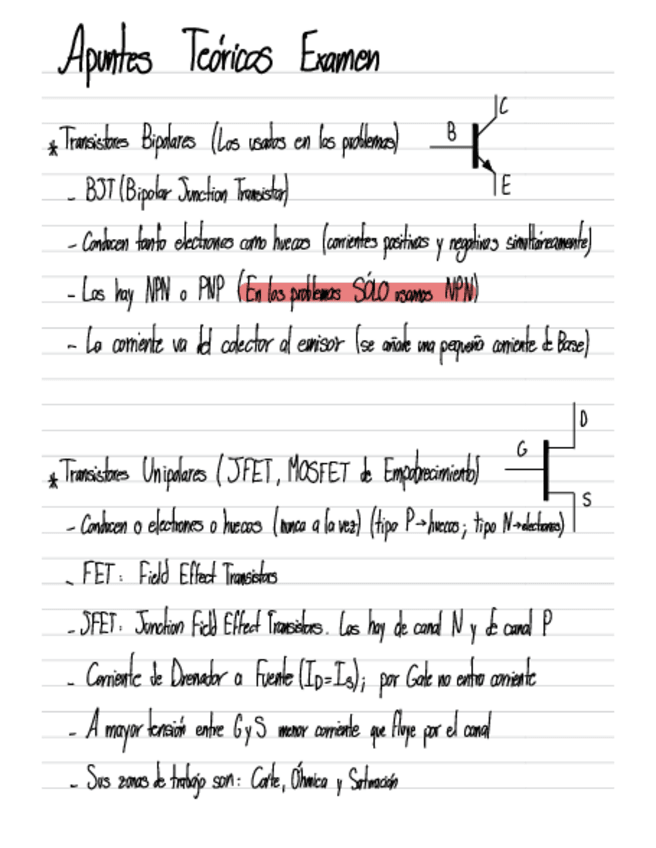 Apuntes Teóricos Examen
* Transistores Bipolares (Los usados en los problemas)
B
C
E
- BJT (Bipolar Junction Transistor)
- Conducen tanto electrones como huecos (corrientes positivas y negativas simultáneamente)
- Los hay NPN o PNP (En los problemas SÓLO usamos NPN)
- La corriente va del colector al emisor (se añade una pequeña corriente de Base)
D
G
S
* Transistores Unipolares (JFET, MOSFET de Empobrecimiento)
- Conducen o electrones o huecos (nunca a la vez) (tipo P→huecos; tipo N→electrones)
- FET: Field Effect Transistors
- JFET: Junction Field Effect Transistors. Los hay de canal N y de canal P
- Corriente de Drenador a Fuente (ID=IS); por Gate no entra corriente
- A mayor tensión entre G y S menor corriente que fluye por el canal
- Sus zonas de trabajo son: Corte, Óhmica y Saturación